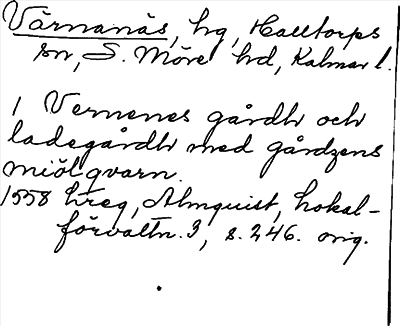 Värnanäs, hg, Halltorps
sn, S. Möre hd, Kalmar l.
1 Vernenes gårdh och
ladegårdh med gårdzens
miölqvarn.
1558 Lreg, Almquist, Lokal-
förvaltn. 3, s. 246. orig.